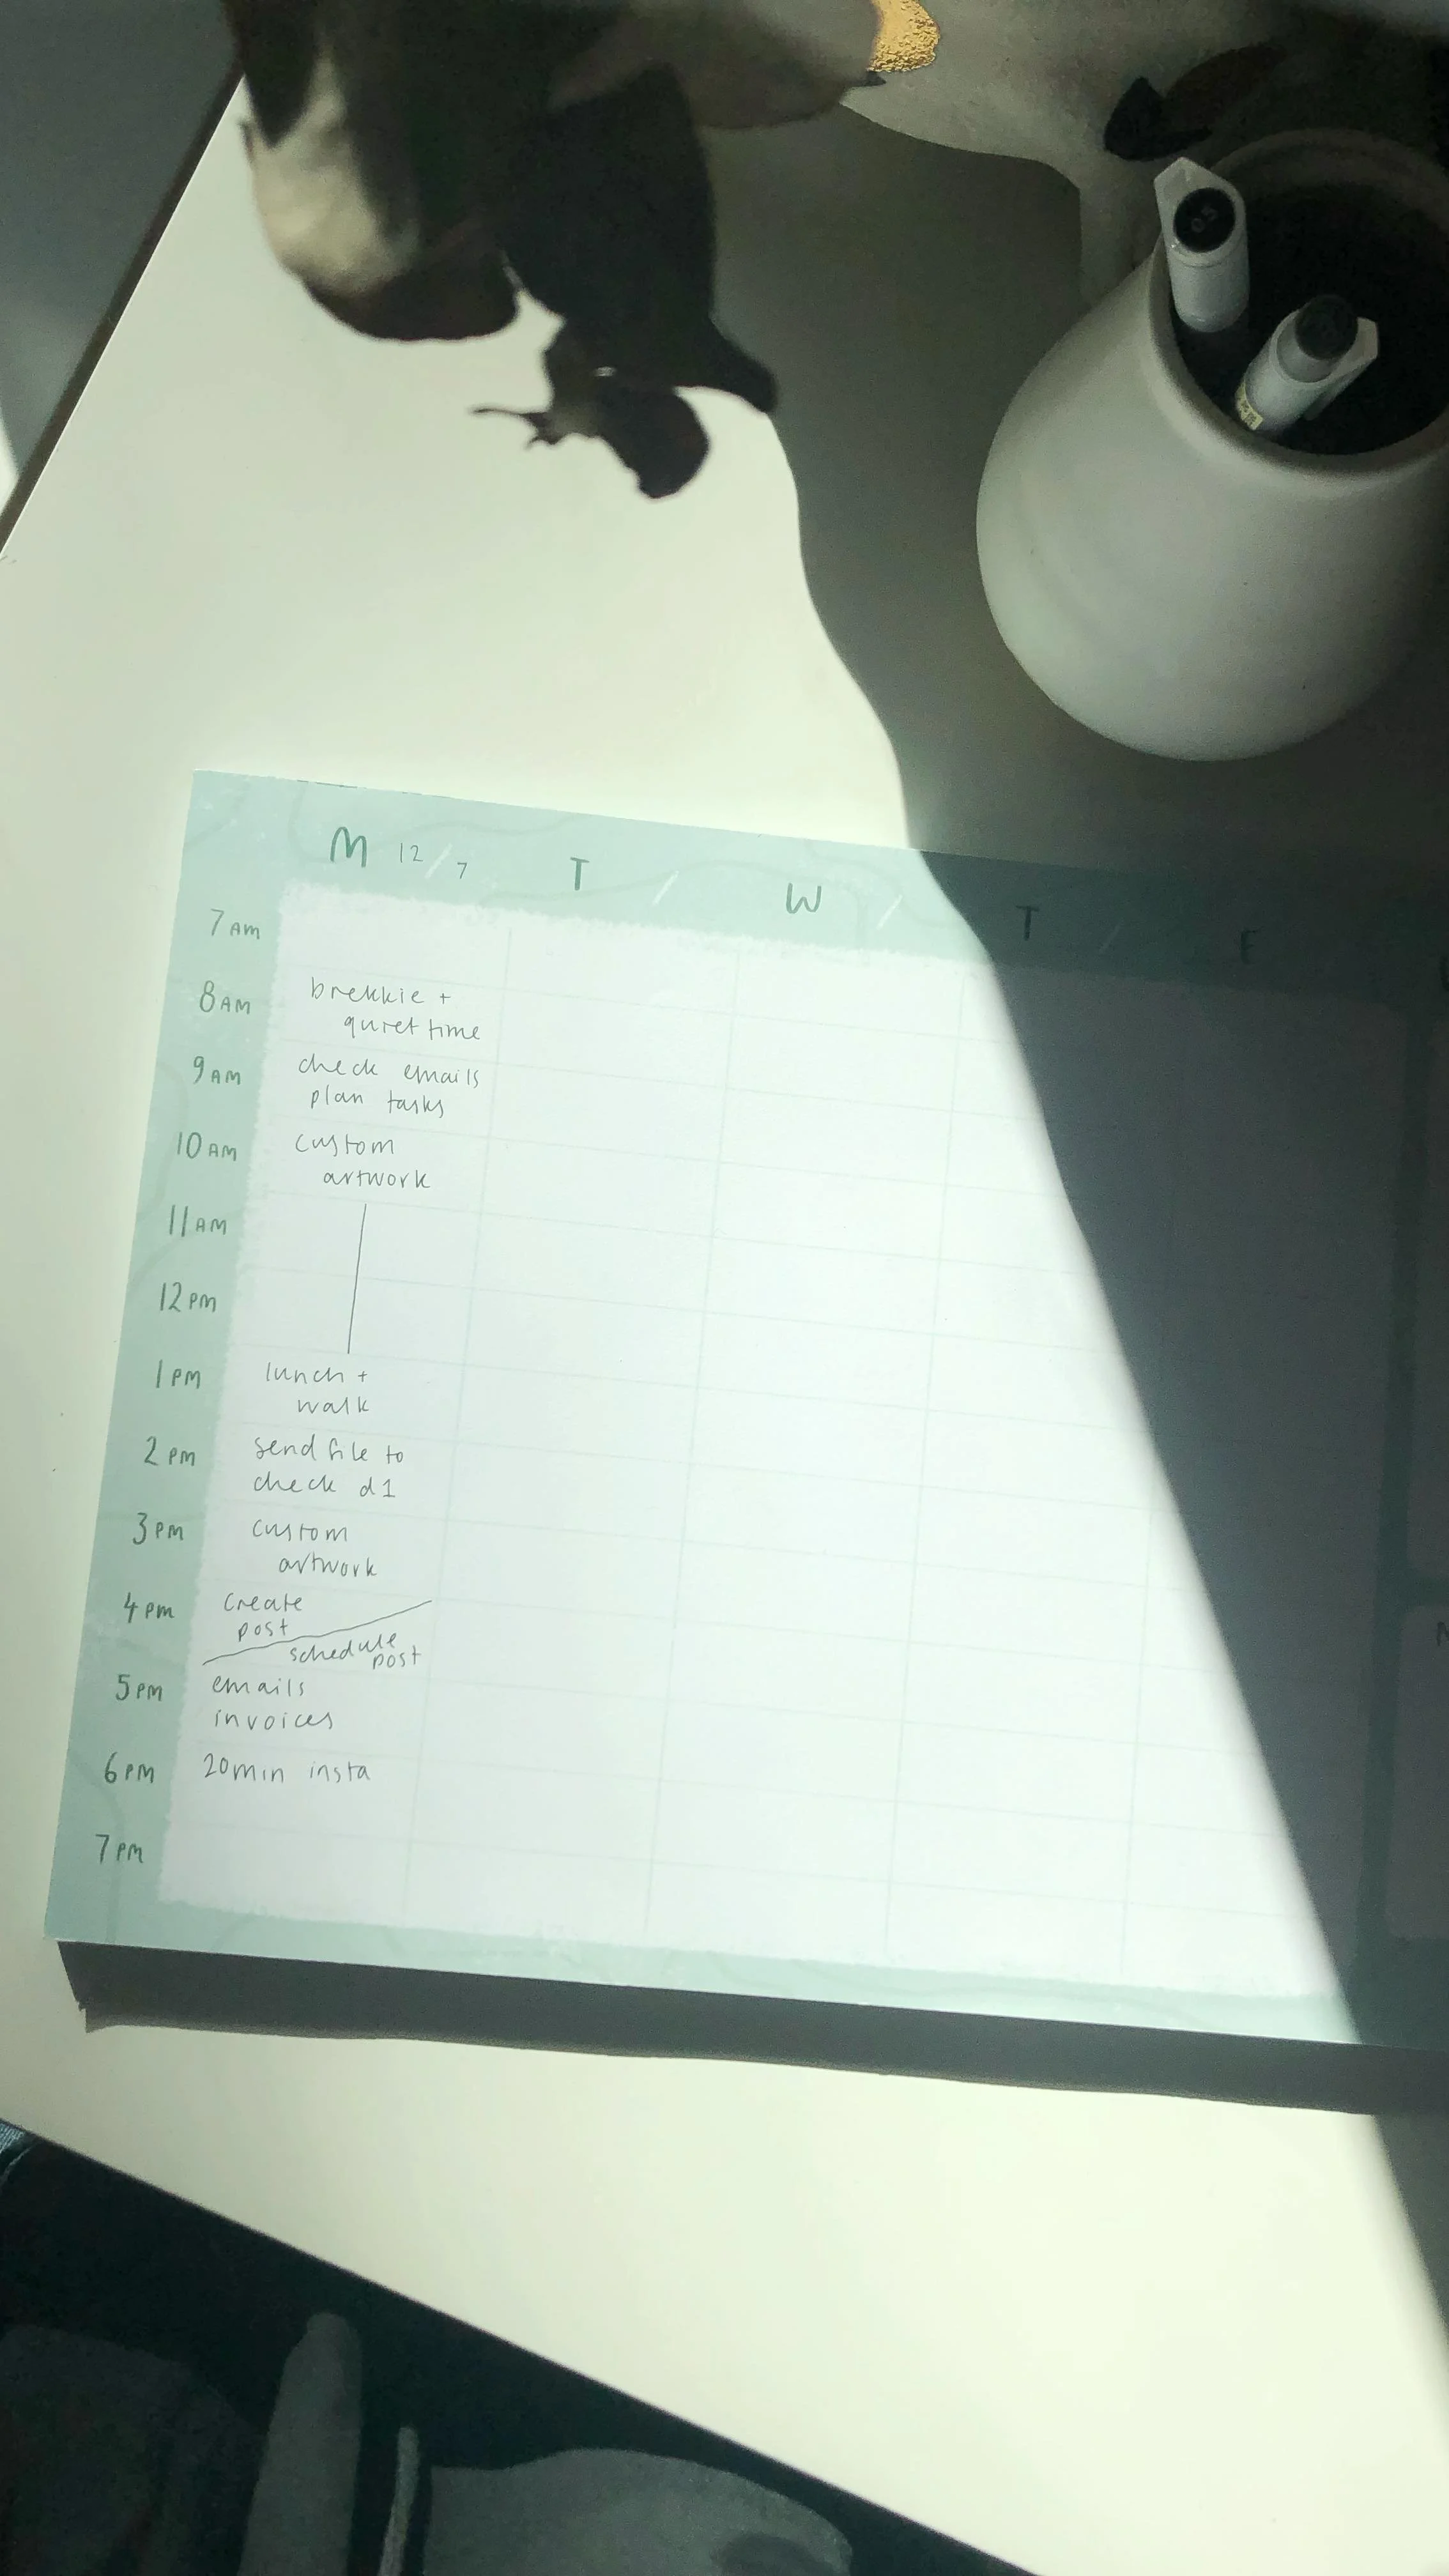 M 12/7 T / W / T / F
7 AM
8 AM brekkie +
quiet time
9 AM check emails
plan tasks
10 AM custom
artwork
11 AM
12 PM
1 PM lunch +
walk
2 PM send file to
check d1
3 PM custom
artwork
4 PM create
post
schedule
post
5 PM emails
invoices
6 PM 20min insta
7 PM